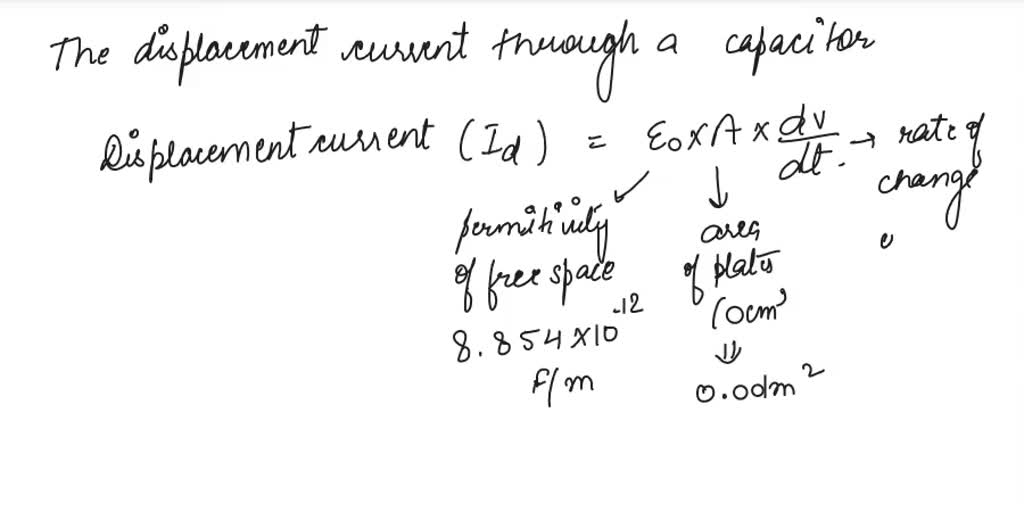 The displacement current through a capacitor
Displacement current (Id) = ε0 x A x dv/dt. → rate of change
permitivity of free space
8.854 x 10^-12
F/m
area of plates
10cm²
⇓
0.0dm²